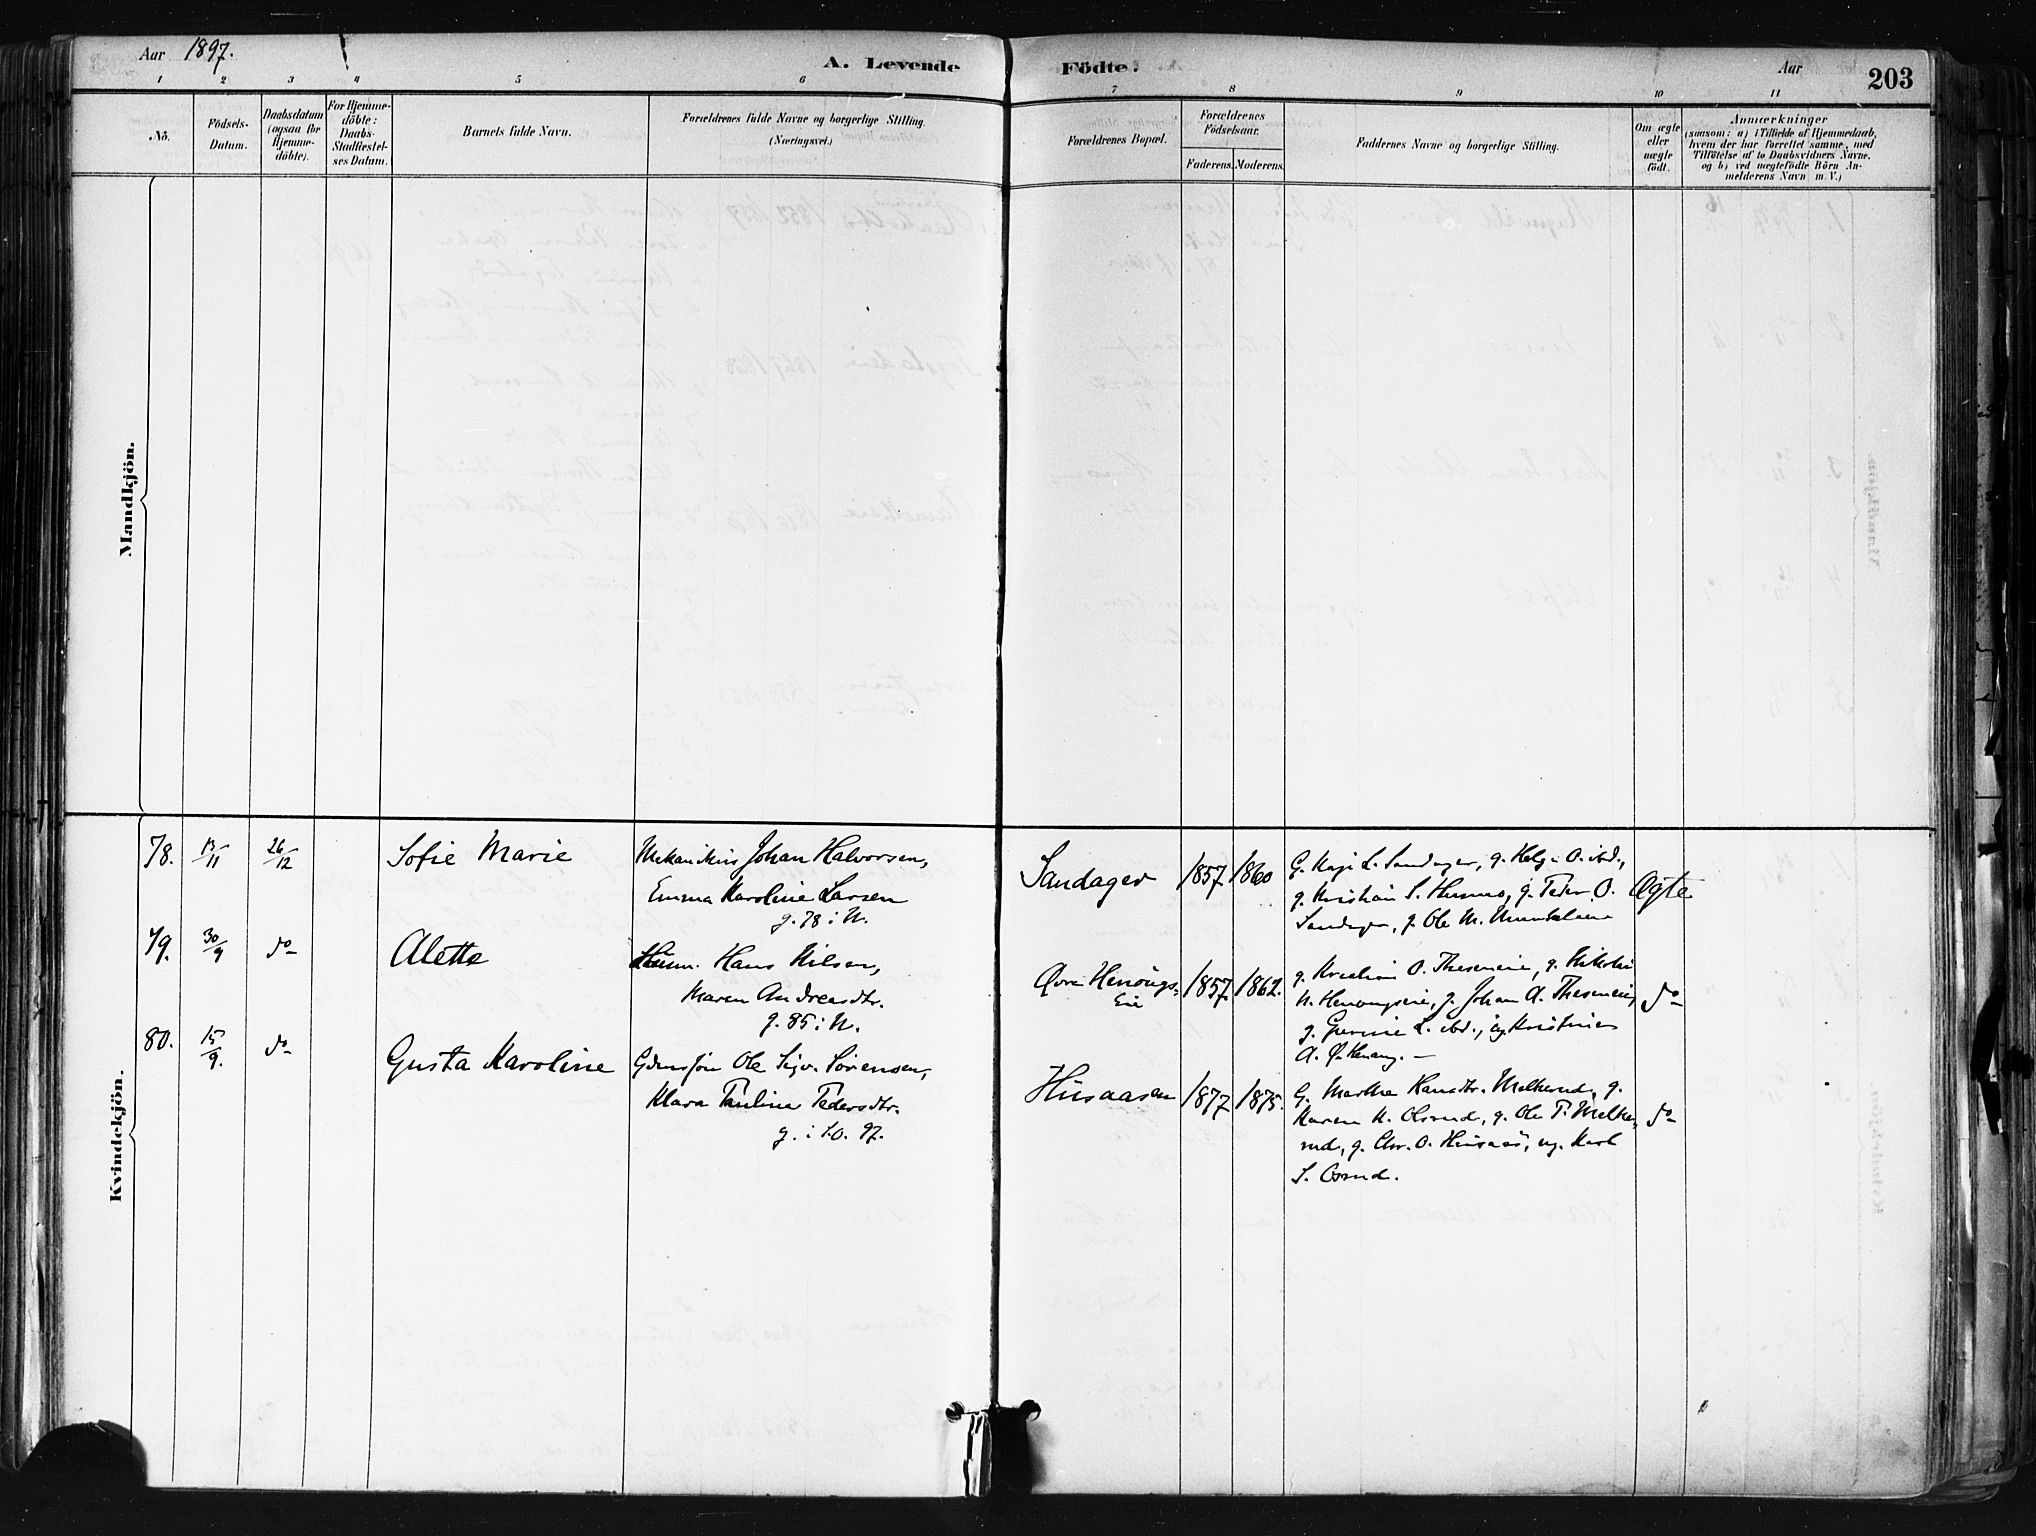 Aar 1897.
A. Levende Födte.
Aar
203
1 2 3 4 5 6 7 8 9 10 11
No.
Födsels-
Datum.
Daabsdatum
(ogsaa for
Hjemme-
döbte).
For Hjemme-
döbte:
Daabs-
Stadfestel-
ses Datum.
Barnets fulde Navn.
Forældrenes fulde Navne og borgerlige Stilling.
(Næringsvei.)
Forældrenes Bopæl.
Forældrenes
Födselsaar.
Faderens. Moderens.
Faddernes Navne og borgerlige Stilling.
Om ægte
eller
uægte
födt.
Anmærkninger
(saasom: a) i Tilfælde af Hjemmedaab,
hvem der har forrettet samme, med
Tilföielse af to Daabsvidners Navne.
og b) ved uægtefödte Börn An-
melderens Navn m. V.)
Mandkjön.
Kvindekjön.
78. 13/11 26/12 Sofie Marie
Mekanikus Johan Halvorsen,
Emma Karoline Larsen
g. 78 i N.
Sandager 1857 1860
G. Kaji L. Sandager, g. Helge O. ibd.,
g. Kristian S. Hesnes, g. Peder O.
Sandager, g. Ole M.
Ægte
79. 30/9 do Alette
Husm. Hans Nilsen,
Maren Andreasdtr.
g. 85 i N.
Øvre Henongs-
Eie
1857. 1862.
g. Kristian O. g. Nikolai
N. Henongseie, g. Johan A.
g. L. ibd., ug. Kristine
A. Ø. Henong. —
do
80. 15/9. do Gusta Karoline
Gdmssøn Ole Sigv. Sörensen,
Klara Paulina Pedersdtr.
g. i S.O. 97.
Husaasen 1877 1875.
G. Marthe Hansdtr. Melkerud, g.
Karen K. Olsrud, g. Ole P. Melke-
rud, g. Chr. O. Husaas, ug. Karl
S. Osrud.
do